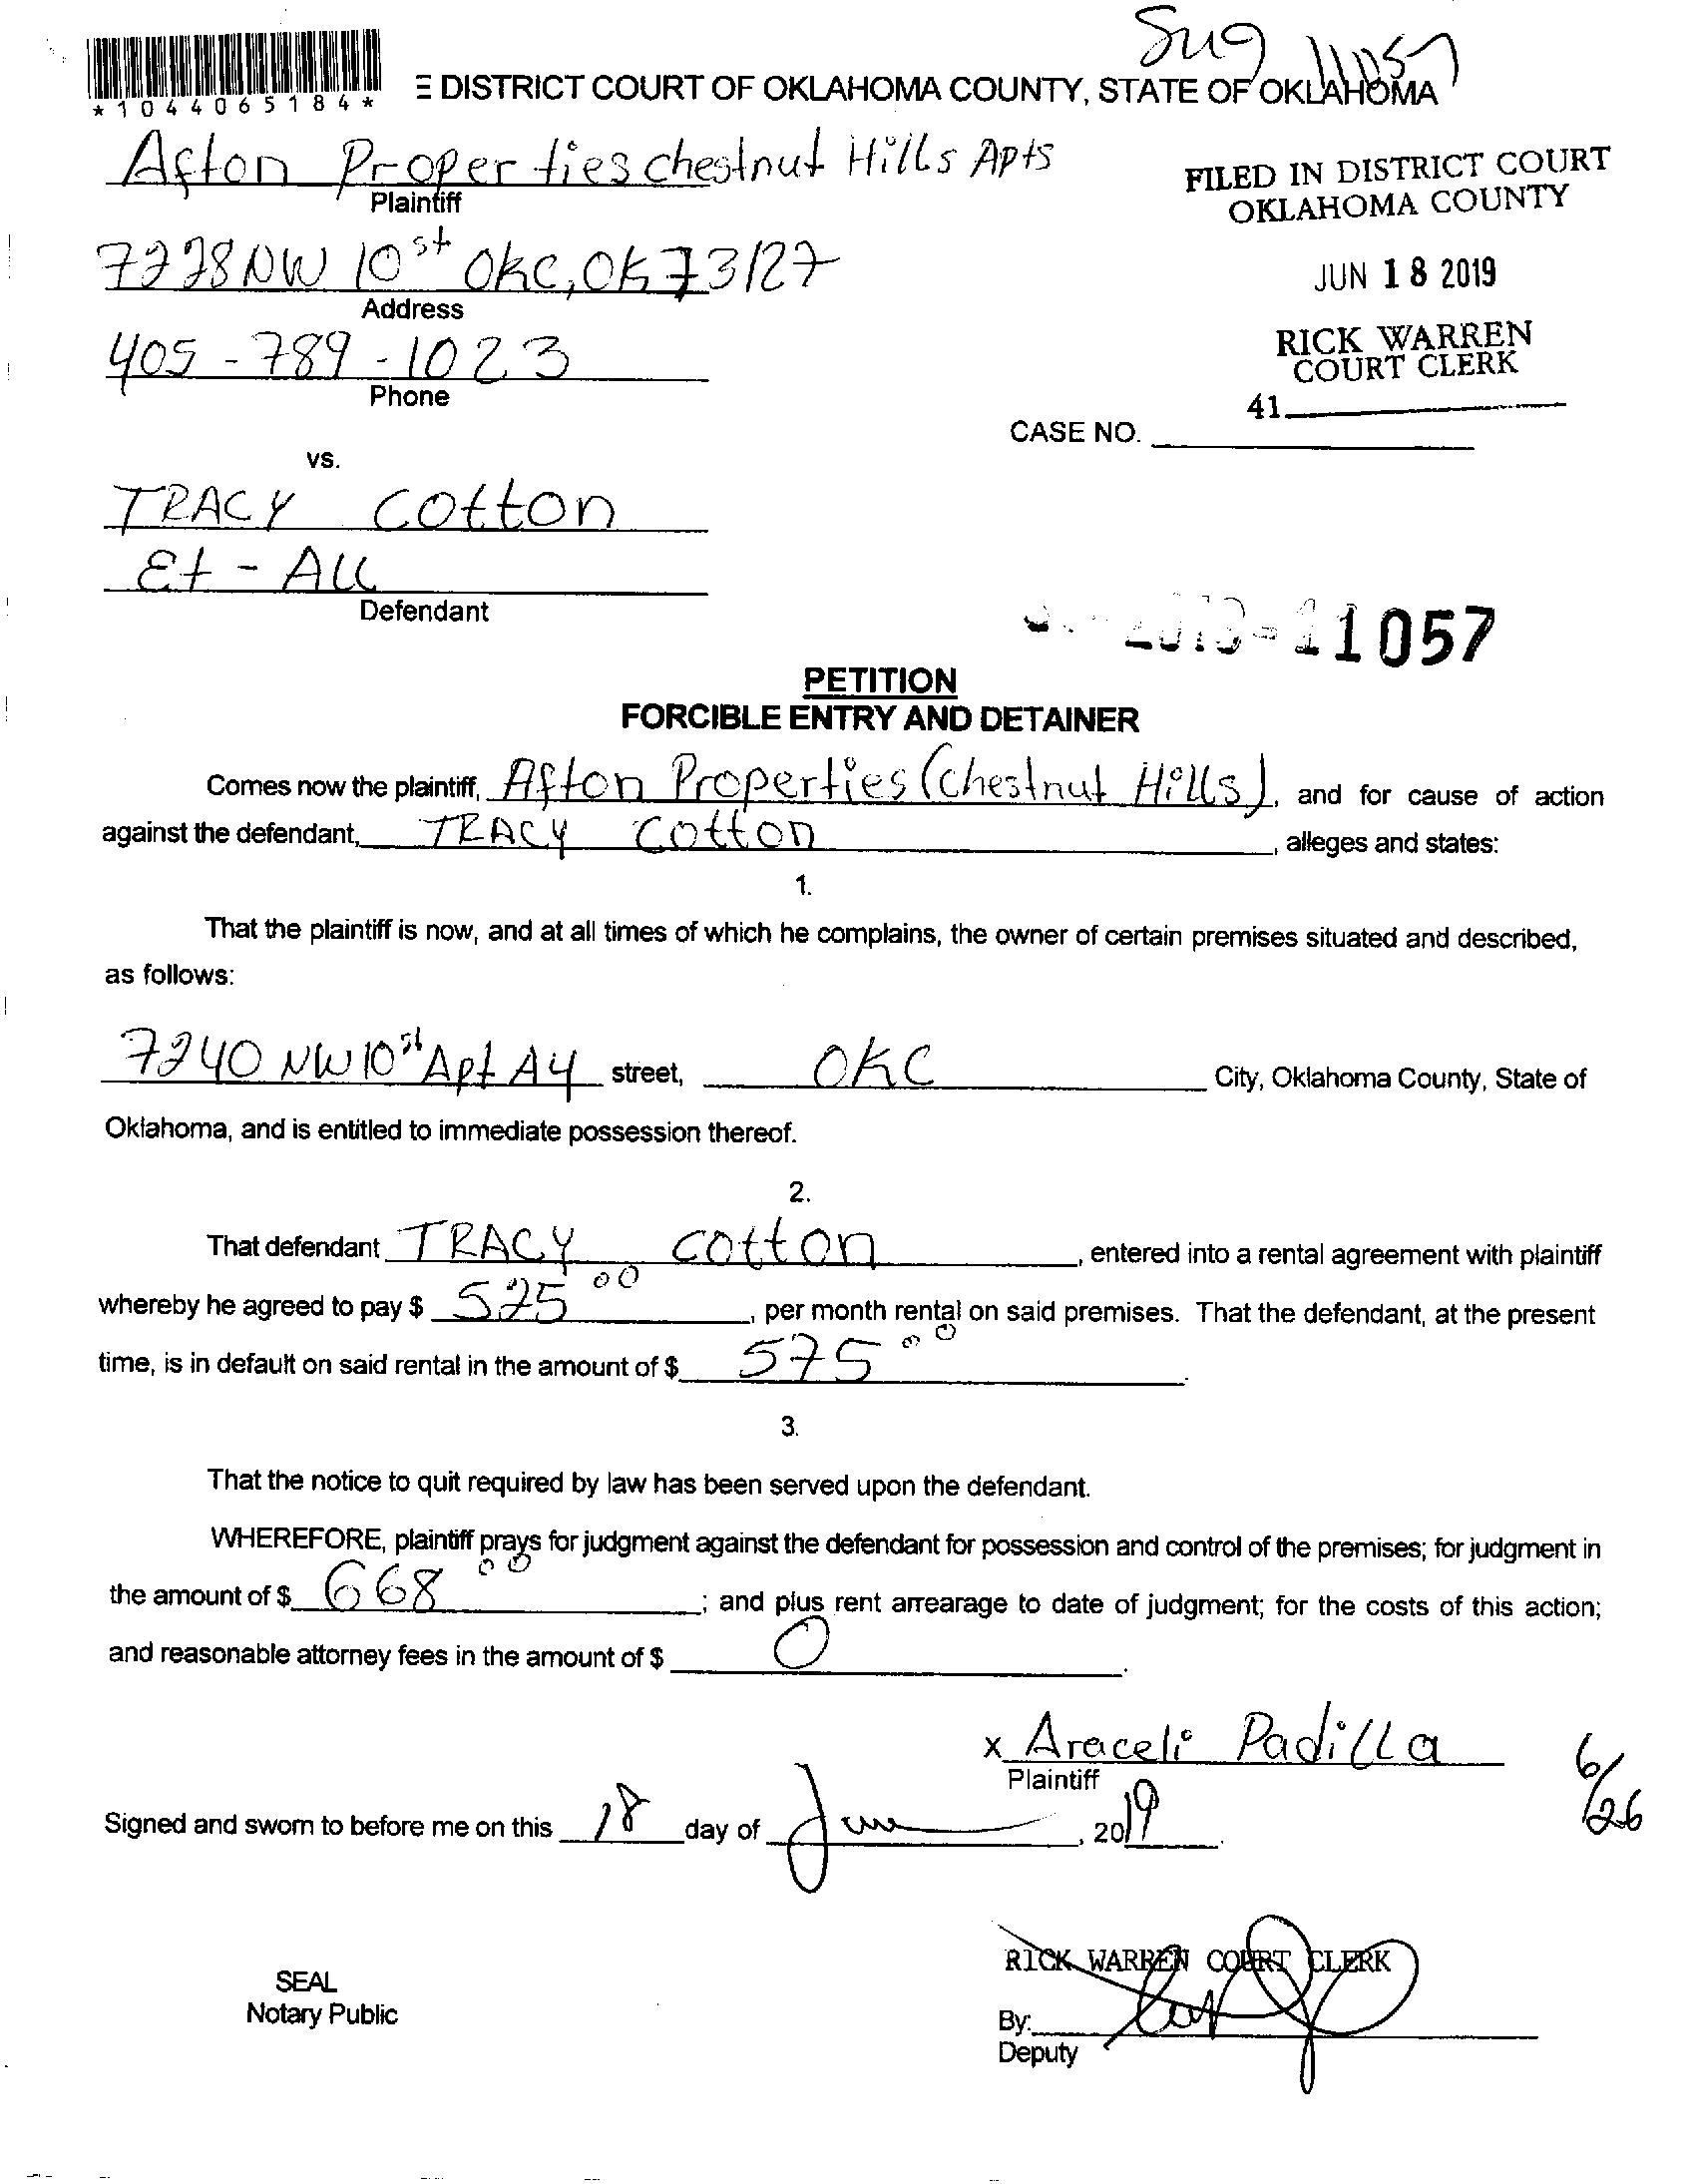 Sug 11057
*1044065184*
E DISTRICT COURT OF OKLAHOMA COUNTY, STATE OF OKLAHOMA
Afton Properties chestnut Hills Apts
Plaintiff
FILED IN DISTRICT COURT
OKLAHOMA COUNTY
7228 NW 10st OKC, OK 73127
Address
JUN 18 2019
405-789-1023
Phone
RICK WARREN
COURT CLERK
41
CASE NO.
vs.
TRACY Cotton
Et-All
Defendant
2019-11057
PETITION
FORCIBLE ENTRY AND DETAINER
Comes now the plaintiff, Afton Properties (chestnut Hills), and for cause of action
against the defendant, TRACY Cotton, alleges and states:
1.
That the plaintiff is now, and at all times of which he complains, the owner of certain premises situated and described,
as follows:
7240 NW 10st Apt A4 street, OKC City, Oklahoma County, State of
Oklahoma, and is entitled to immediate possession thereof.
2.
That defendant TRACY Cotton, entered into a rental agreement with plaintiff
whereby he agreed to pay $ 525 00, per month rental on said premises. That the defendant, at the present
time, is in default on said rental in the amount of $ 575 00.
3.
That the notice to quit required by law has been served upon the defendant.
WHEREFORE, plaintiff prays for judgment against the defendant for possession and control of the premises; for judgment in
the amount of $ 668 00; and plus rent arrearage to date of judgment; for the costs of this action;
and reasonable attorney fees in the amount of $ 0.
x Araceli Padilla
Plaintiff
6/26
Signed and sworn to before me on this 18 day of June, 2019.
RICK WARREN COURT CLERK
SEAL
Notary Public
By:
Deputy